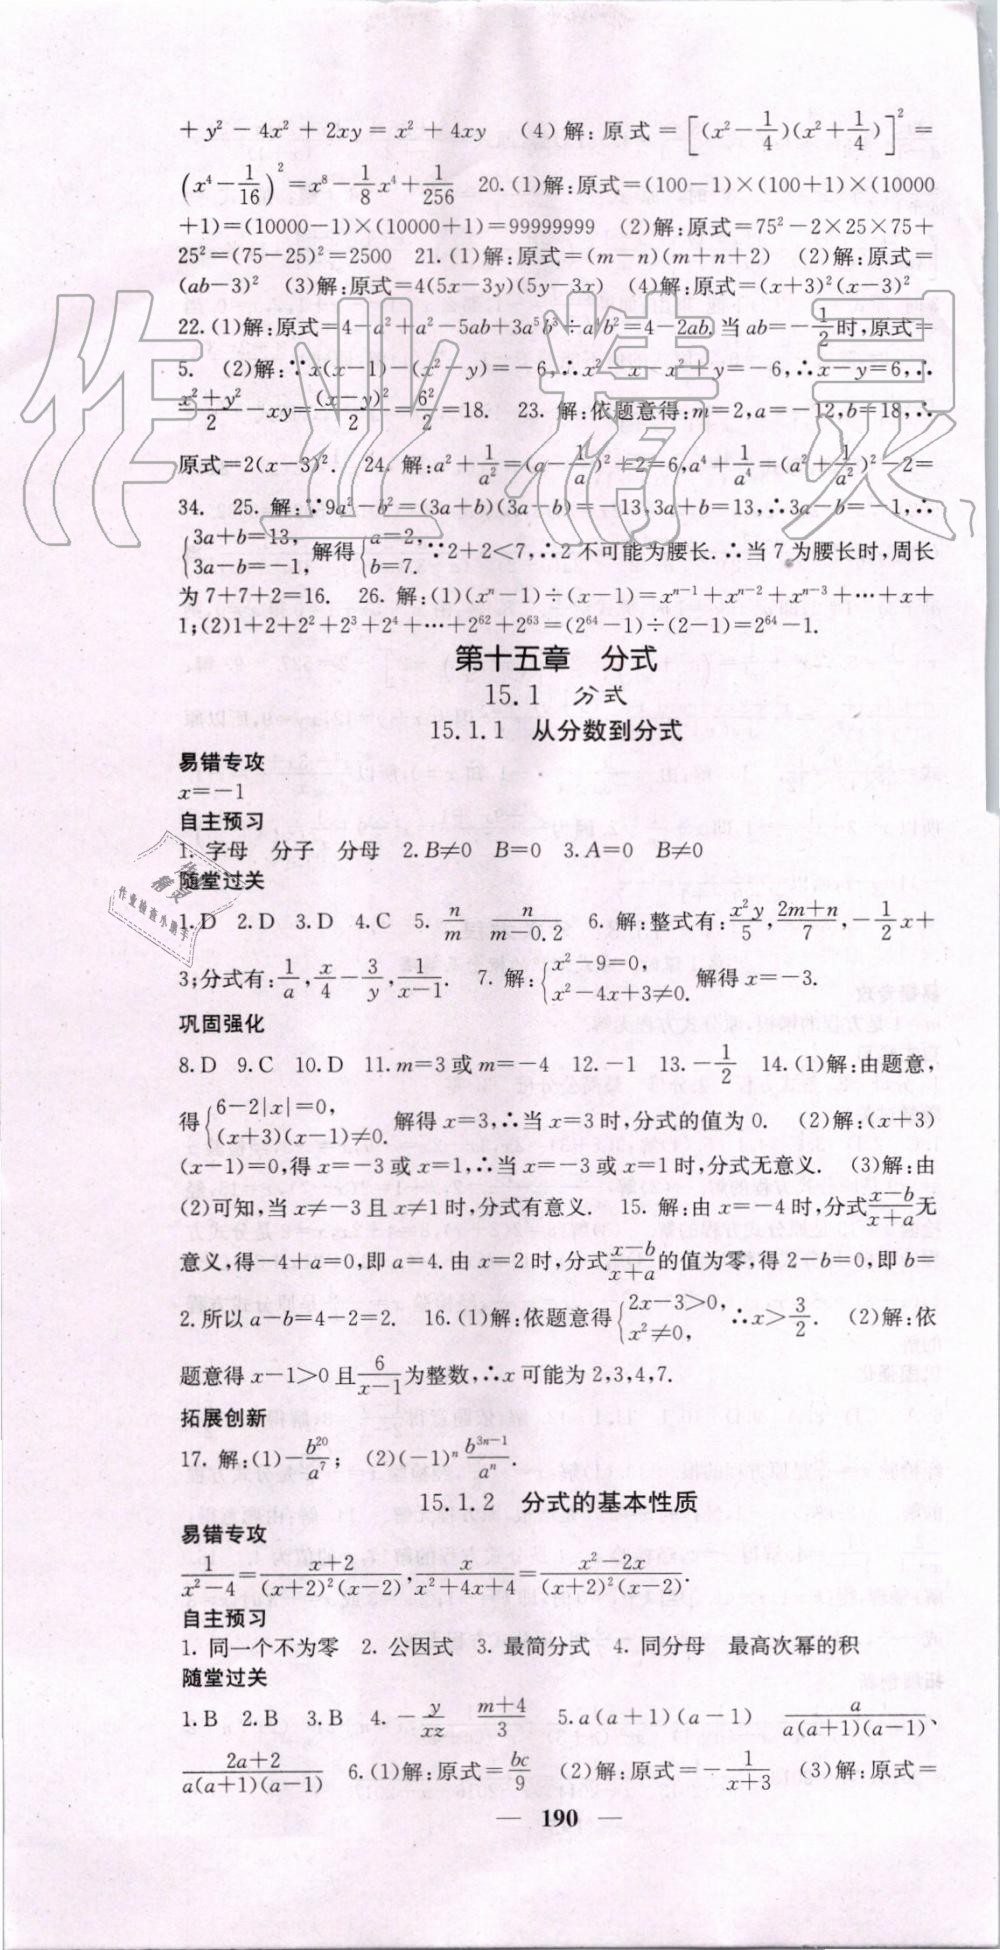 +y²-4x²+2xy=x²+4xy (4)解:原式=[(x²-1/4)(x²+1/4)]²=
(x⁴-1/16)²=x⁸-1/8x⁴+1/256 20.(1)解:原式=(100-1)×(100+1)×(10000
+1)=(10000-1)×(10000+1)=99999999 (2)解:原式=75²-2×25×75+
25²=(75-25)²=2500 21.(1)解:原式=(m-n)(m+n+2) (2)解:原式=
(ab-3)² (3)解:原式=4(5x-3y)(5y-3x) (4)解:原式=(x+3)²(x-3)²
22.(1)解:原式=4-a²+a²-5ab+3a⁵b³÷a⁴b²=4-2ab,当ab=-1/2时,原式=
5. (2)解:∵x(x-1)-(x²-y)=-6,∴x²-x-x²+y=-6,∴x-y=6,∴
(x²+y²)/2-xy=(x-y)²/2=6²/2=18. 23. 解:依题意得:m=2,a=-12,b=18,∴
原式=2(x-3)². 24. 解:a²+1/a²=(a-1/a)²+2=6,a⁴+1/a⁴=(a²+1/a²)²-2=
34. 25. 解:∵9a²-b²=(3a+b)(3a-b)=-13,3a+b=13,∴3a-b=-1,∴
{3a+b=13, 3a-b=-1, 解得{a=2, b=7. ∵2+2<7,∴2不可能为腰长.∴当7为腰长时,周长
为7+7+2=16. 26. 解:(1)(xⁿ-1)÷(x-1)=xⁿ⁻¹+xⁿ⁻²+xⁿ⁻³+…+x+
1;(2)1+2+2²+2³+2⁴+…+2⁶²+2⁶³=(2⁶⁴-1)÷(2-1)=2⁶⁴-1.
第十五章 分式
15.1 分式
15.1.1 从分数到分式
易错专攻
x=-1
自主预习
1. 字母 分子 分母 2.B≠0 B=0 3.A=0 B≠0
随堂过关
1.D 2.D 3.D 4.C 5. n/m n/(m-0.2) 6. 解:整式有:x²y/5,(2m+n)/7,-1/2x+
3;分式有:1/a,x/4-3/y,1/(x-1). 7. 解:{x²-9=0, x²-4x+3≠0. 解得x=-3.
巩固强化
8.D 9.C 10.D 11.m=3或m=-4 12.-1 13.-1/2 14.(1)解:由题意,
得{6-2|x|=0, (x+3)(x-1)≠0. 解得x=3,∴当x=3时,分式的值为0. (2)解:(x+3)
(x-1)=0,得x=-3或x=1,∴当x=-3或x=1时,分式无意义. (3)解:由
(2)可知,当x≠-3且x≠1时,分式有意义. 15. 解:由x=-4时,分式(x-b)/(x+a)无
意义,得-4+a=0,即a=4.由x=2时,分式(x-b)/(x+a)的值为零,得2-b=0,即b=
2.所以a-b=4-2=2. 16.(1)解:依题意得{2x-3>0, x²≠0, ∴x>3/2. (2)解:依
题意得x-1>0且6/(x-1)为整数,∴x可能为2,3,4,7.
拓展创新
17. 解:(1)-b²⁰/a⁷; (2)(-1)ⁿ b³ⁿ⁻¹/aⁿ.
15.1.2 分式的基本性质
易错专攻
1/(x²-4)=(x+2)/((x+2)²(x-2)),x/(x²+4x+4)=(x²-2x)/((x+2)²(x-2)).
自主预习
1. 同一个不为零 2. 公因式 3. 最简分式 4. 同分母 最高次幂的积
随堂过关
1.B 2.B 3.B 4.-y/xz (m+4)/3 5.a(a+1)(a-1) a/(a(a+1)(a-1))、
(2a+2)/(a(a+1)(a-1)) 6.(1)解:原式=bc/9 (2)解:原式=-1/(x+3) (3)解:原式=
— 190 —
作业精灵
作业检查小助手